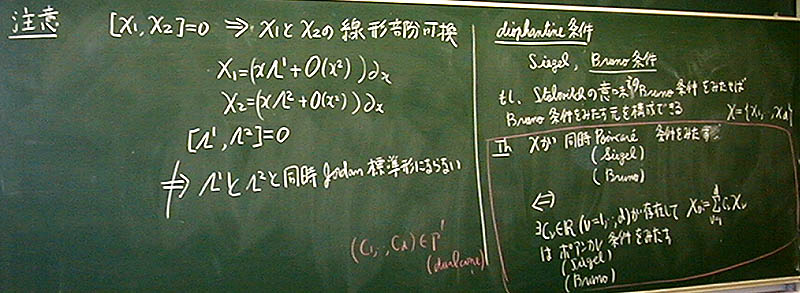 注意
[X₁, X₂]=0 ⇒ X₁とX₂の線形部分可換
X₁=(xΛ¹+O(x²))∂ₓ
X₂=(xΛ²+O(x²))∂ₓ
[Λ¹, Λ²]=0
⇏ Λ¹とΛ²と同時Jordan標準形にならない
(C₁,‥,C_d)∈Γ'
(dual cone)
diophantine 条件
Siegel, Bruno 条件
もし、Stolovitchの意味のBruno条件をみたせば
Bruno条件をみたす元を構成できる
X={X₁,‥,X_d}
Th Xが同時Poincaré 条件をみたす
(Siegel)
(Bruno)
⇔
∃C_ν∈ℝ (ν=1,‥,d)が存在して X₀=∑_{ν=1}^{d} C_ν X_ν
はポアンカレ条件をみたす
(Siegel)
(Bruno)